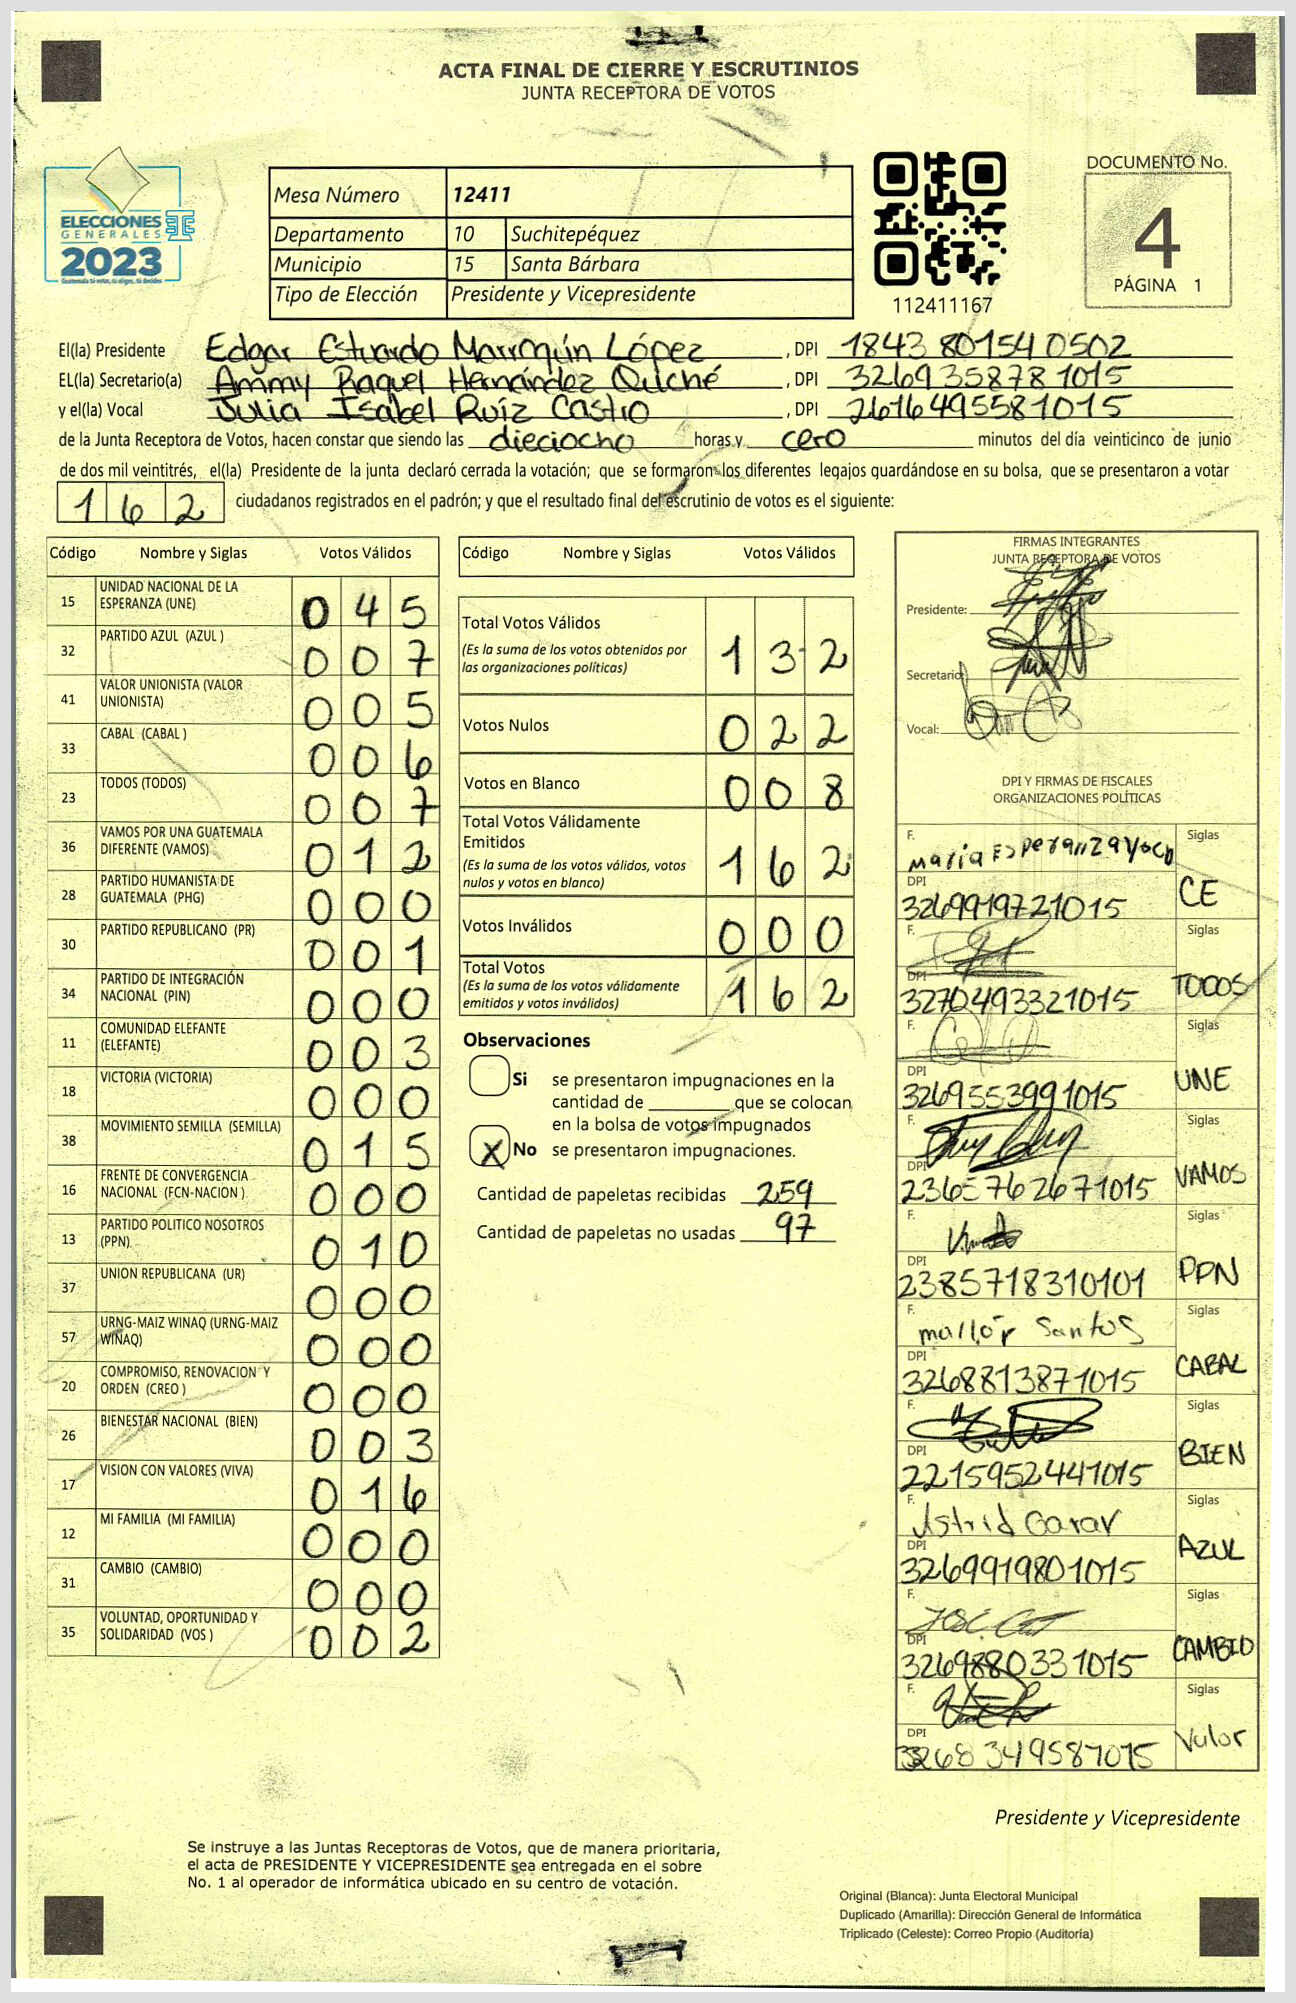 ACTA FINAL DE CIERRE Y ESCRUTINIOS
JUNTA RECEPTORA DE VOTOS
ELECCIONES
GENERALES
2023
Mesa Número 12411
Departamento 10 Suchitepéquez
Municipio 15 Santa Bárbara
Tipo de Elección Presidente y Vicepresidente
112411167
DOCUMENTO No.
4
PÁGINA 1
El(la) Presidente Edgar Estuardo Marroquín López, DPI 1843 80154 0502
EL(la) Secretario(a) Ammy Raquel Hernández Quiché, DPI 3269 35878 1015
y el(la) Vocal Julia Isabel Ruíz Castro, DPI 2616495581015
de la Junta Receptora de Votos, hacen constar que siendo las dieciocho horas y cero minutos del día veinticinco de junio
de dos mil veintitrés, el(la) Presidente de la junta declaró cerrada la votación; que se formaron los diferentes legajos guardándose en su bolsa, que se presentaron a votar
162 ciudadanos registrados en el padrón; y que el resultado final del escrutinio de votos es el siguiente:
Código Nombre y Siglas Votos Válidos
15 UNIDAD NACIONAL DE LA ESPERANZA (UNE) 045
32 PARTIDO AZUL (AZUL ) 007
41 VALOR UNIONISTA (VALOR UNIONISTA) 005
33 CABAL (CABAL ) 006
23 TODOS (TODOS) 007
36 VAMOS POR UNA GUATEMALA DIFERENTE (VAMOS) 012
28 PARTIDO HUMANISTA DE GUATEMALA (PHG) 000
30 PARTIDO REPUBLICANO (PR) 001
34 PARTIDO DE INTEGRACIÓN NACIONAL (PIN) 000
11 COMUNIDAD ELEFANTE (ELEFANTE) 003
18 VICTORIA (VICTORIA) 000
38 MOVIMIENTO SEMILLA (SEMILLA) 015
16 FRENTE DE CONVERGENCIA NACIONAL (FCN-NACION ) 000
13 PARTIDO POLITICO NOSOTROS (PPN) 010
37 UNION REPUBLICANA (UR) 000
57 URNG-MAIZ WINAQ (URNG-MAIZ WINAQ) 000
20 COMPROMISO, RENOVACION Y ORDEN (CREO ) 000
26 BIENESTAR NACIONAL (BIEN) 003
17 VISION CON VALORES (VIVA) 016
12 MI FAMILIA (MI FAMILIA) 000
31 CAMBIO (CAMBIO) 000
35 VOLUNTAD, OPORTUNIDAD Y SOLIDARIDAD (VOS ) 002
Código Nombre y Siglas Votos Válidos
Total Votos Válidos 132
(Es la suma de los votos obtenidos por
las organizaciones políticas)
Votos Nulos 022
Votos en Blanco 008
Total Votos Válidamente
Emitidos 162
(Es la suma de los votos válidos, votos
nulos y votos en blanco)
Votos Inválidos 000
Total Votos 162
(Es la suma de los votos válidamente
emitidos y votos inválidos)
Observaciones
Si se presentaron impugnaciones en la
cantidad de ________ que se colocan
en la bolsa de votos impugnados
X No se presentaron impugnaciones.
Cantidad de papeletas recibidas 259
Cantidad de papeletas no usadas 97
FIRMAS INTEGRANTES
JUNTA RECEPTORA DE VOTOS
Presidente:
Secretario:
Vocal:
DPI Y FIRMAS DE FISCALES
ORGANIZACIONES POLÍTICAS
F. María Esperanza Siglas
DPI 3269919721015 CE
F. Siglas
DPI 3270493321015 TODOS
F. Siglas
DPI 3269553991015 UNE
F. Siglas
DPI 2365762671015 VAMOS
F. Siglas
DPI 2385718310101 PPN
F. Santos Siglas
DPI 3268813871015 CABAL
F. Siglas
DPI 2215952441015 BIEN
F. Astrid Siglas
DPI 3269919801015 AZUL
F. Siglas
DPI 3269880331015 CAMBIO
F. Siglas
DPI 3268349587015 Valor
Presidente y Vicepresidente
Se instruye a las Juntas Receptoras de Votos, que de manera prioritaria,
el acta de PRESIDENTE Y VICEPRESIDENTE sea entregada en el sobre
No. 1 al operador de informática ubicado en su centro de votación.
Original (Blanca): Junta Electoral Municipal
Duplicado (Amarilla): Dirección General de Informática
Triplicado (Celeste): Correo Propio (Auditoría)